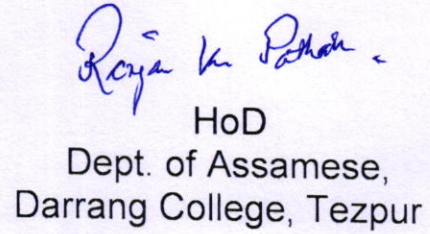 Ranjan Kr Pathak.
HoD
Dept. of Assamese,
Darrang College, Tezpur